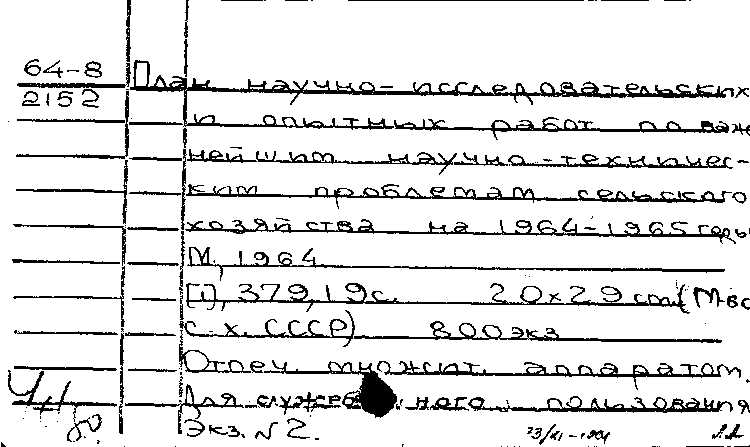 64-8
2152
План научно-исследовательских
и опытных работ по важ
нейшим научно-техничес-
ким проблемам сельского
хозяйства на 1964-1965 годы
М., 1964
[1], 379, 19с. 20х29 см (М-во
с.х. СССР) 800 экз
Отпеч. множит. аппаратом.
Для служебного пользования
Экз. N 2.